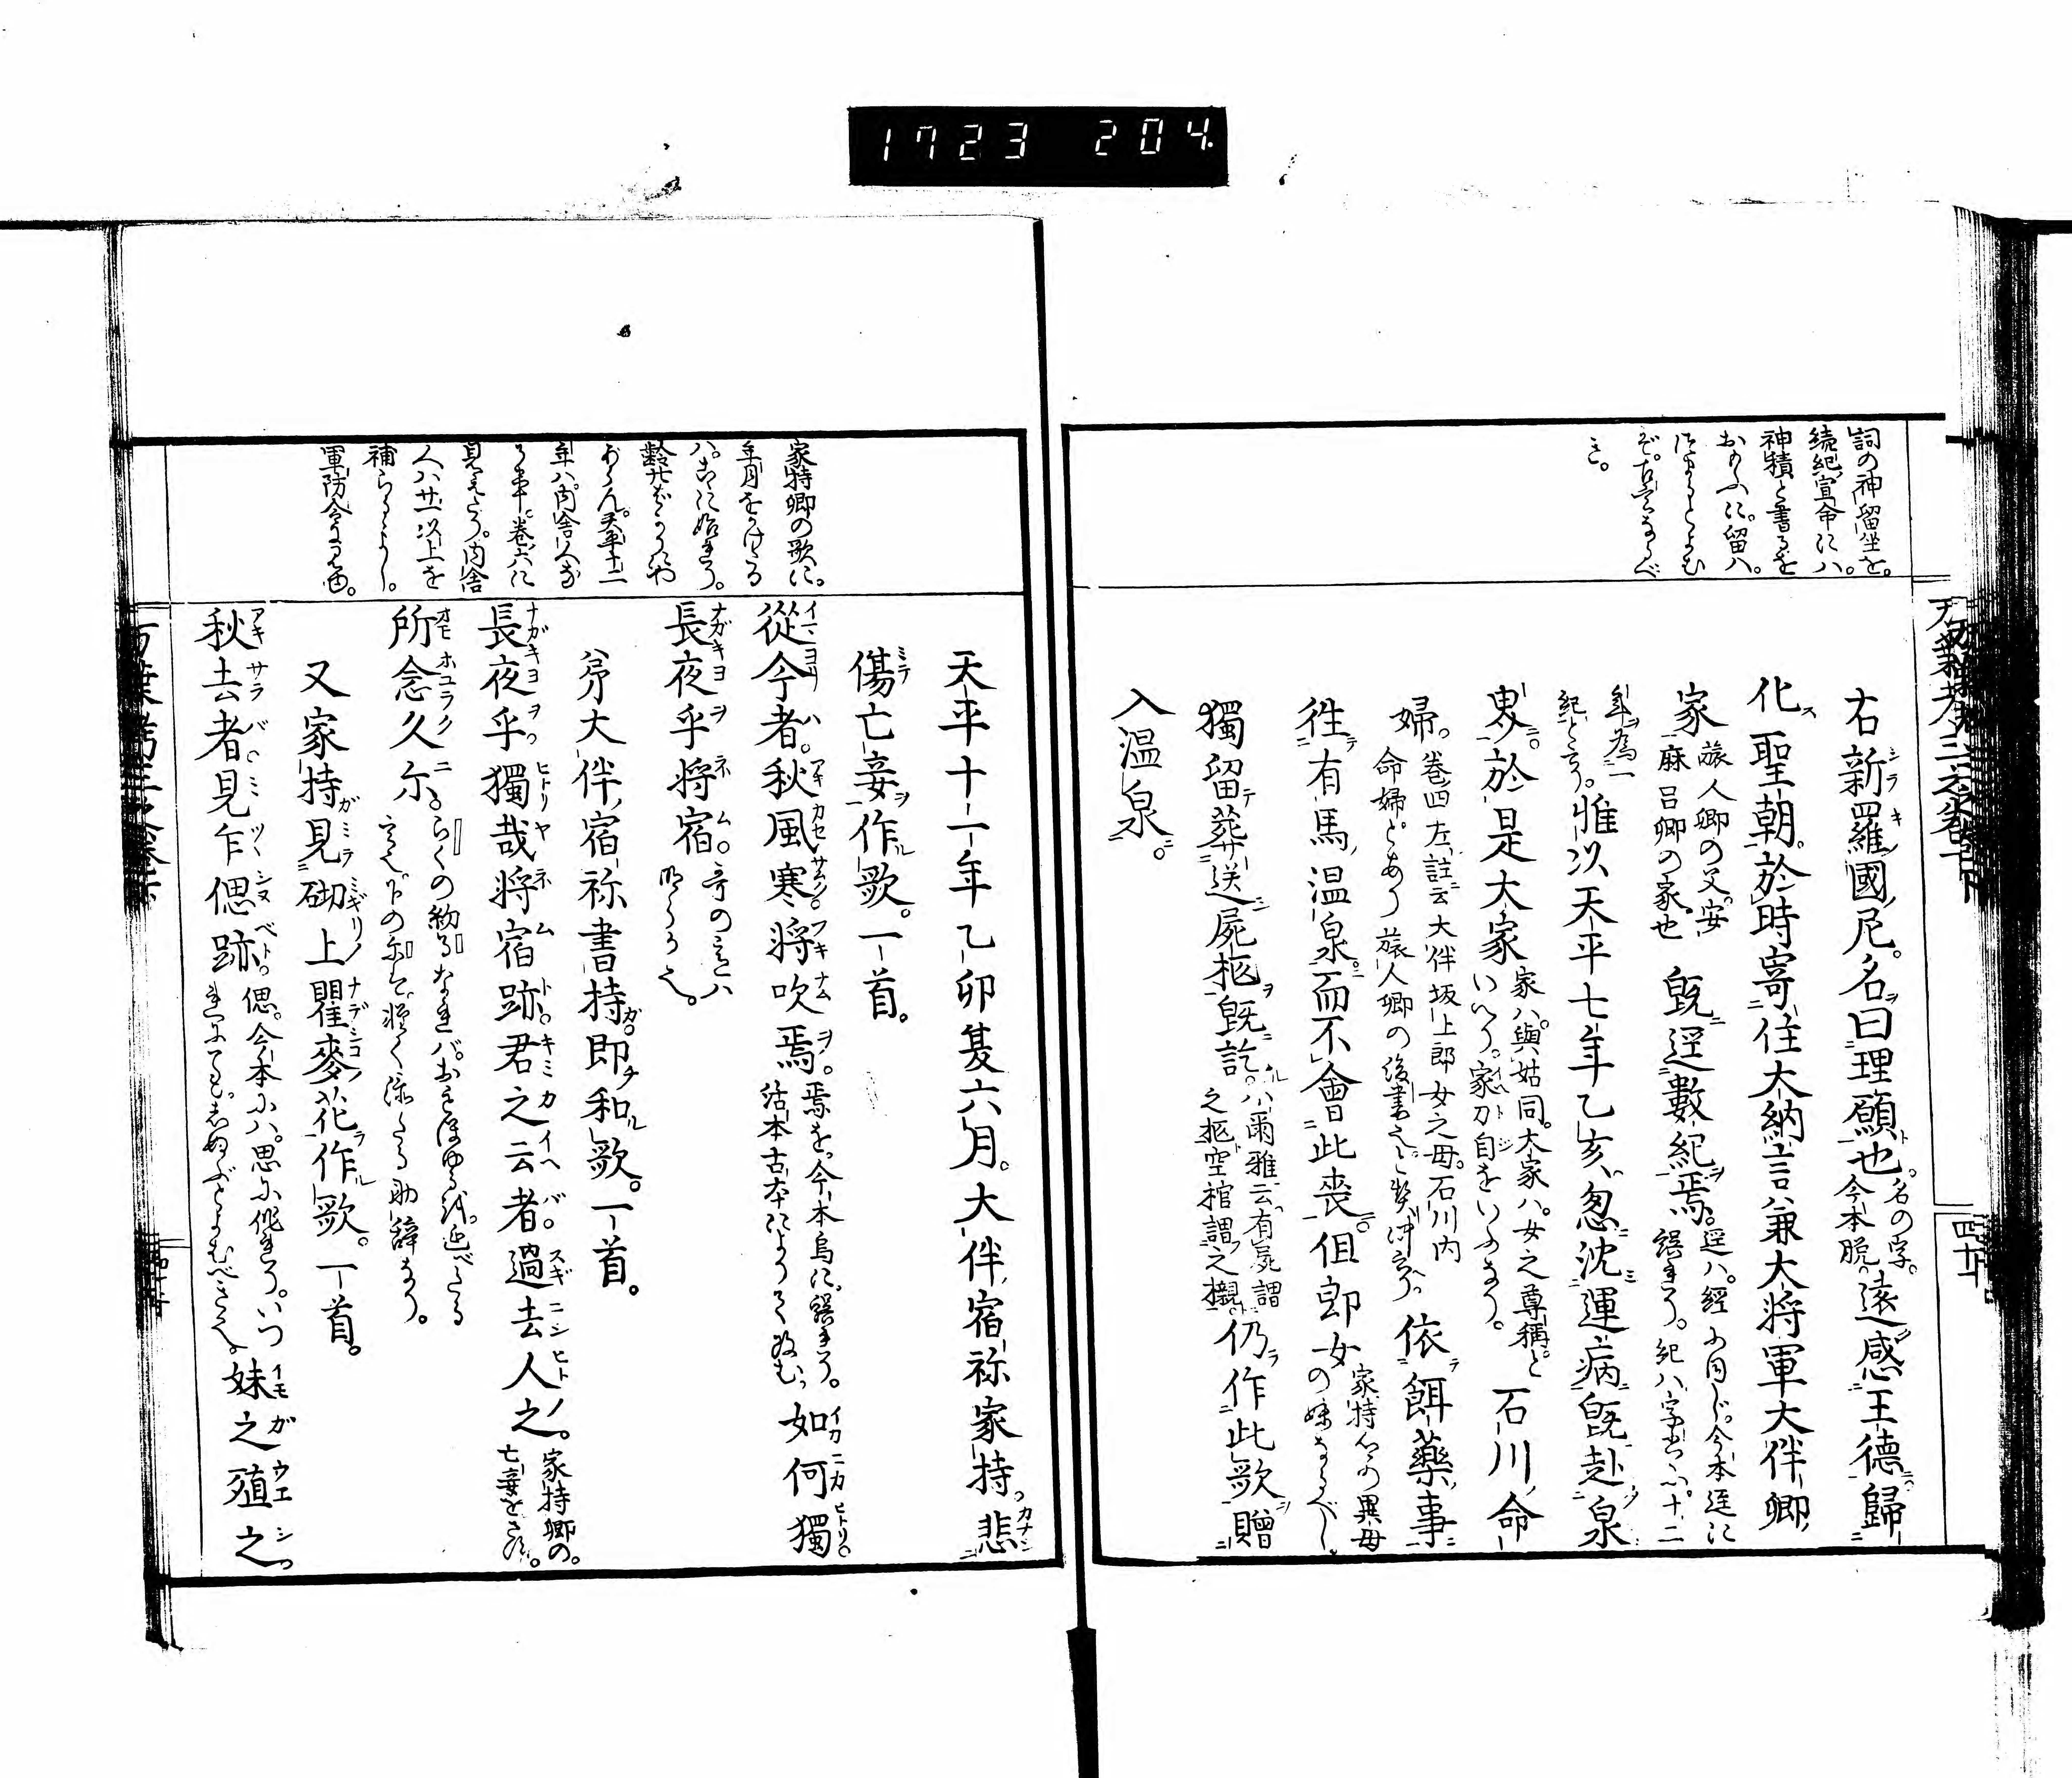 1723 204.
詞の神留坐を。
続紀宣命に八。
神積と書るを
おもふに。留八。
つまるとよむ
べ
き。
右新羅國尼。名曰理願也。名の字。今本脱。遠感王德歸
化聖朝。於時寄住大納言兼大将軍大伴卿
家旅人卿の父。安麻呂卿の家也既逕數紀焉。逕ハ。經に同じ。今本逕に誤れり。紀ハ字書ニ。十二
年ヲ為一紀と云り。惟以天平七年乙亥、忽沈運病既赴泉
界於是大家家ハ。與姑同。大家ハ。女之尊稱といへり。家刀自をいふなり。石川命
婦。卷四左註云大伴坂上郎女之母。石川内命婦とあり旅人卿の後妻也依餌藥事
徃有馬温泉。而不會此喪。但郎女家持卿の異母の妹なるべし。
獨留葬送屍柩既訖。小爾雅云。有屍謂之柩。空棺謂之櫬。仍作此歌贈
入温泉。
家持卿の歌に。
年月をつけたる
八。是に始れり。
齢廿ばかりにや
おはしけん。天平十二
年八。内舎人な
る事。卷六に
見えたり。内舎
人八廿一以上を
補らるゝよし。
軍防令に見ゆ。
天平十一年乙卯夏六月。大伴宿祢家持。悲
傷亡妾作歌。一首。
從今者。秋風寒。將吹焉。焉を。今本烏に。誤れり。活本古本によりて改む。如何獨
長夜乎將宿。哥の意ハ明らか也。
弟大伴宿祢書持即和歌。一首。
長夜乎。獨哉將宿跡。君之云者。過去人之。家持卿の。亡妾をさす。
所念久尓。らくの約るなれバ。おもほゆるを。延べたる言也下の尓を軽く添たる助辭なり。
又家持見砌上瞿麥花作歌。一首。
秋去者。見乍偲跡。偲。今本に八。思に作れり。いづれにても。しぬぶとよむべきなり。妹之殖之